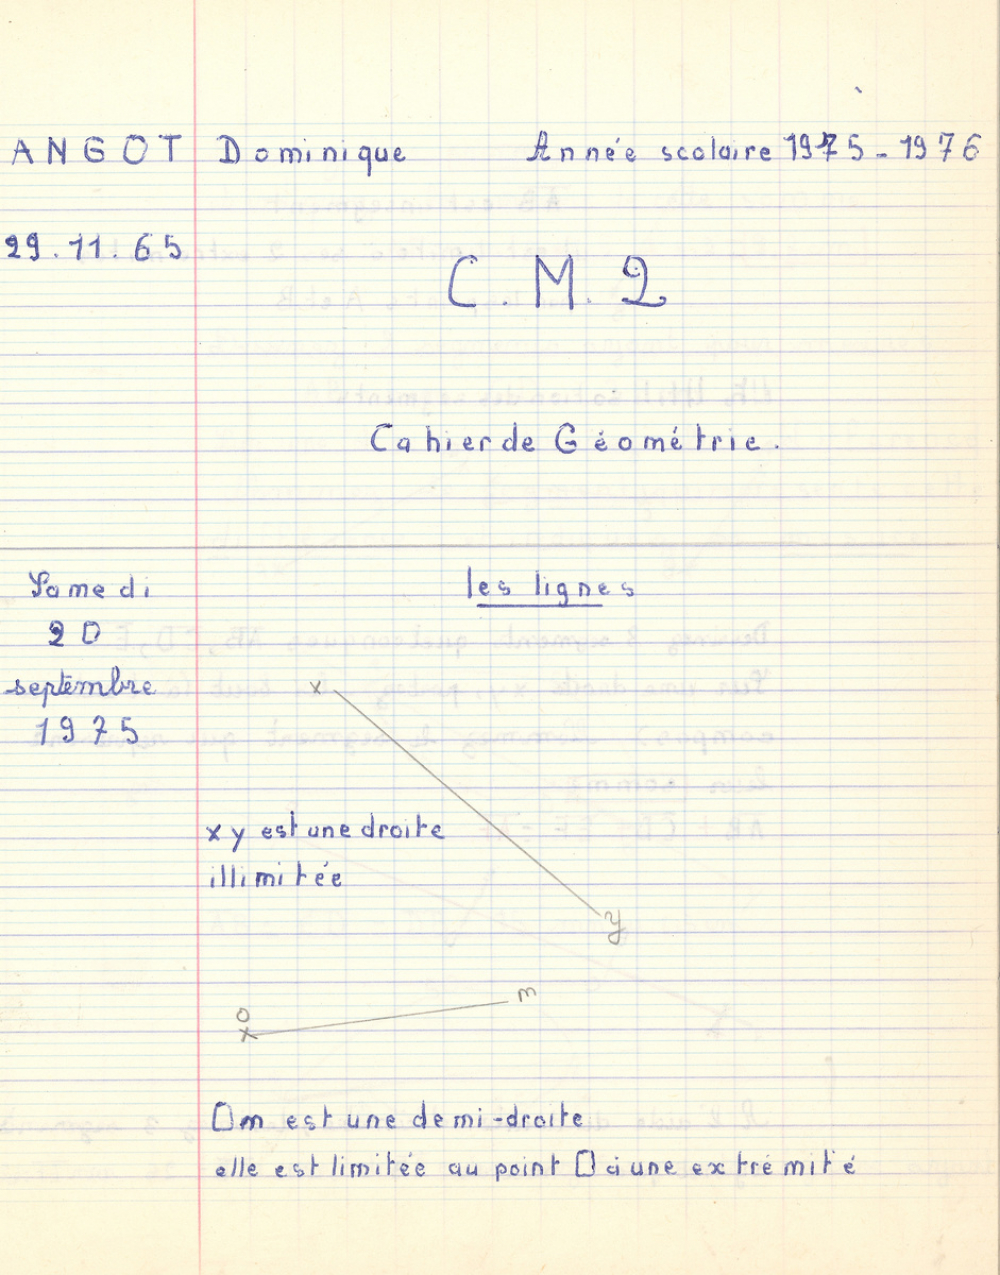 ANGOT Dominique Année scolaire 1975-1976
29.11.65
C.M.2
Cahier de Géométrie.
Samedi
20
septembre
1975
les lignes
x
xy est une droite
illimitée
y
o
m
Om est une demi-droite
elle est limitée au point O à une extrémité